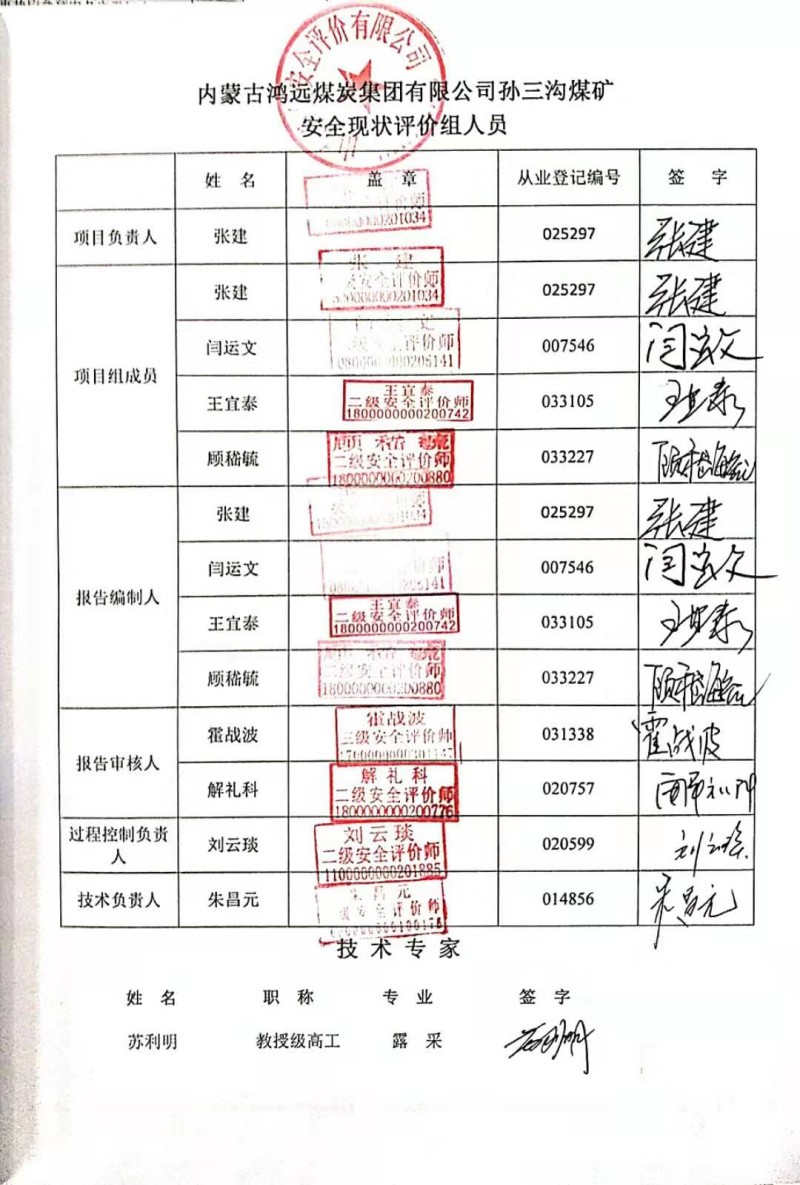 安全评价有限公司
内蒙古鸿远煤炭集团有限公司孙三沟煤矿
安全现状评价组人员
姓 名 盖 章 从业登记编号 签 字
项目负责人 张建 025297 张建
00000201034
项目组成员
张建 张 建 025297 张建
安全评价师
0000000201034
闫运文 文 007546 闫运文
级安全评价师
0800000000205141
王宜泰 王宜泰 033105 王宜泰
二级安全评价师
1800000000200742
顾嵇毓 顾 嵇 毓 033227 顾嵇毓
二级安全评价师
1800000000200880
报告编制人
张建 025297 张建
闫运文 007546 闫运文
王宜泰 王宜泰 033105 王宜泰
二级安全评价师
1800000000200742
顾嵇毓 顾 嵇 毓 033227 顾嵇毓
二级安全评价师
1800000000200880
报告审核人
霍战波 霍战波 031338 霍战波
三级安全评价师
解礼科 解礼科 020757
二级安全评价师
1800000000200776
过程控制负责人 刘云琰 刘云琰 020599 刘云琰
二级安全评价师
1100000000201885
技术负责人 朱昌元 朱昌元 014856 朱昌元
级安全评价师
技 术 专 家
姓 名 职 称 专 业 签 字
苏利明 教授级高工 露 采 苏利明